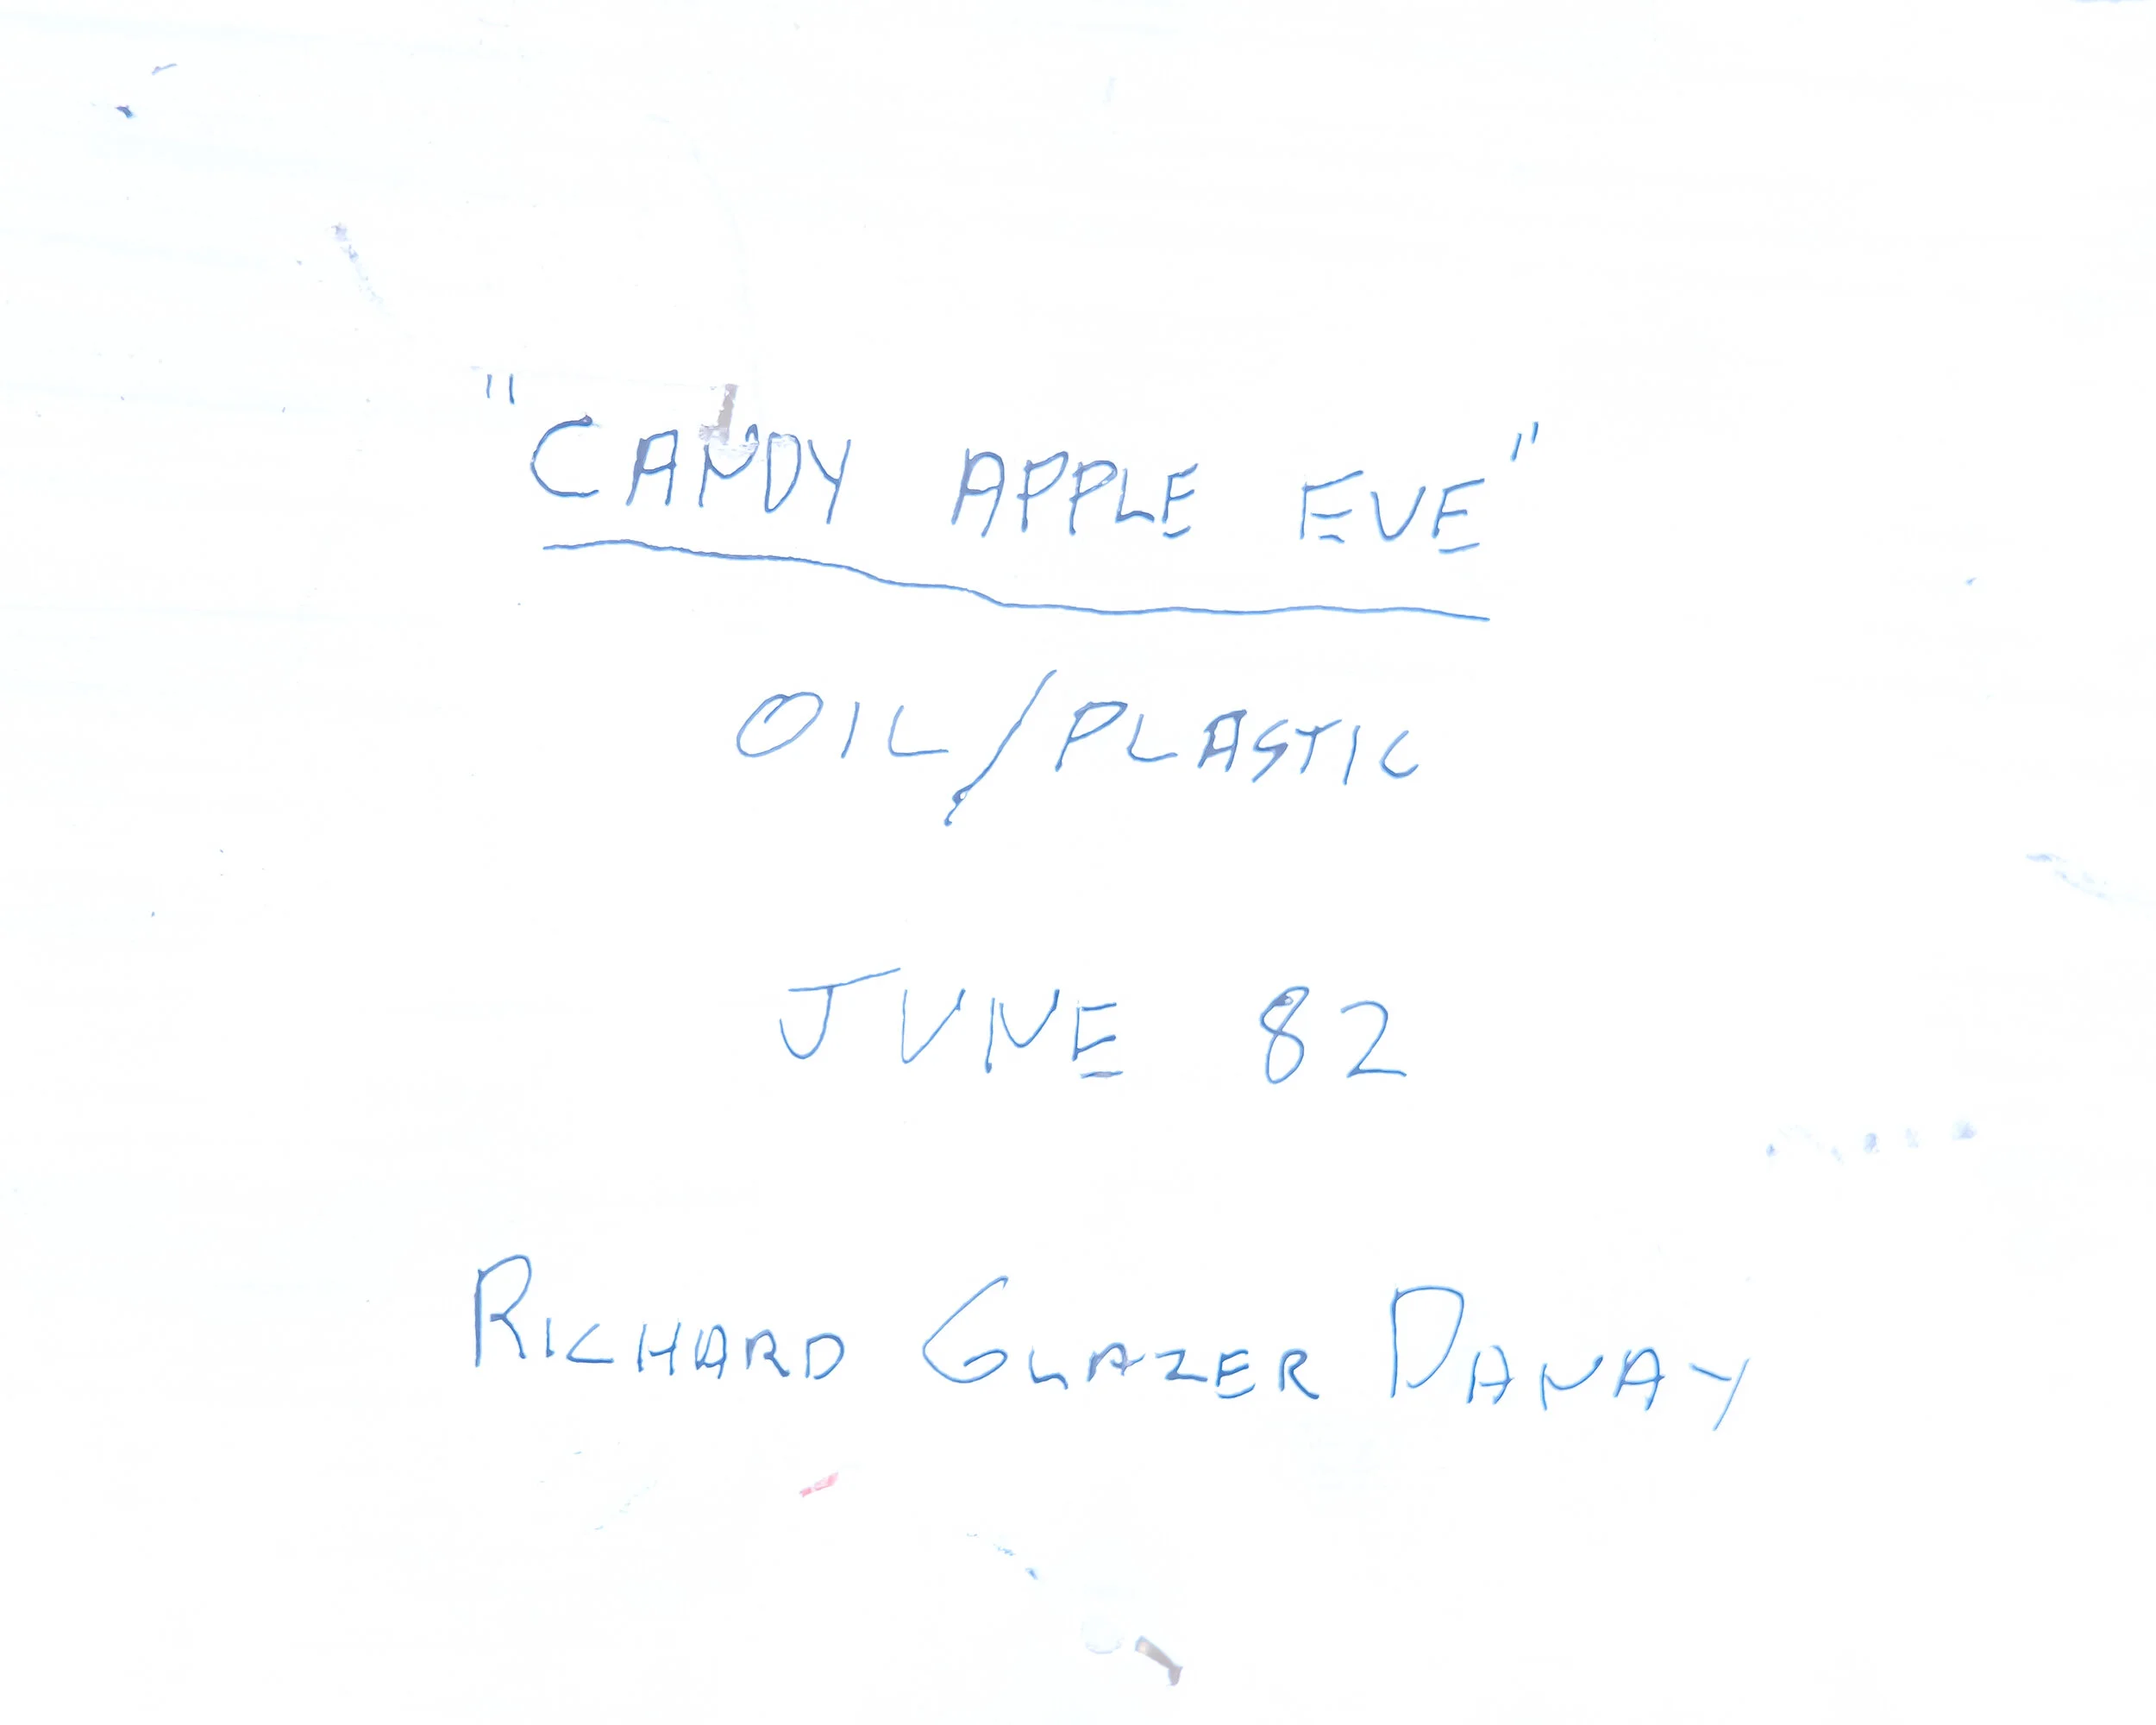 "CANDY APPLE EVE"
OIL/PLASTIC
JUNE 82
RICHARD GLAZER DANAY